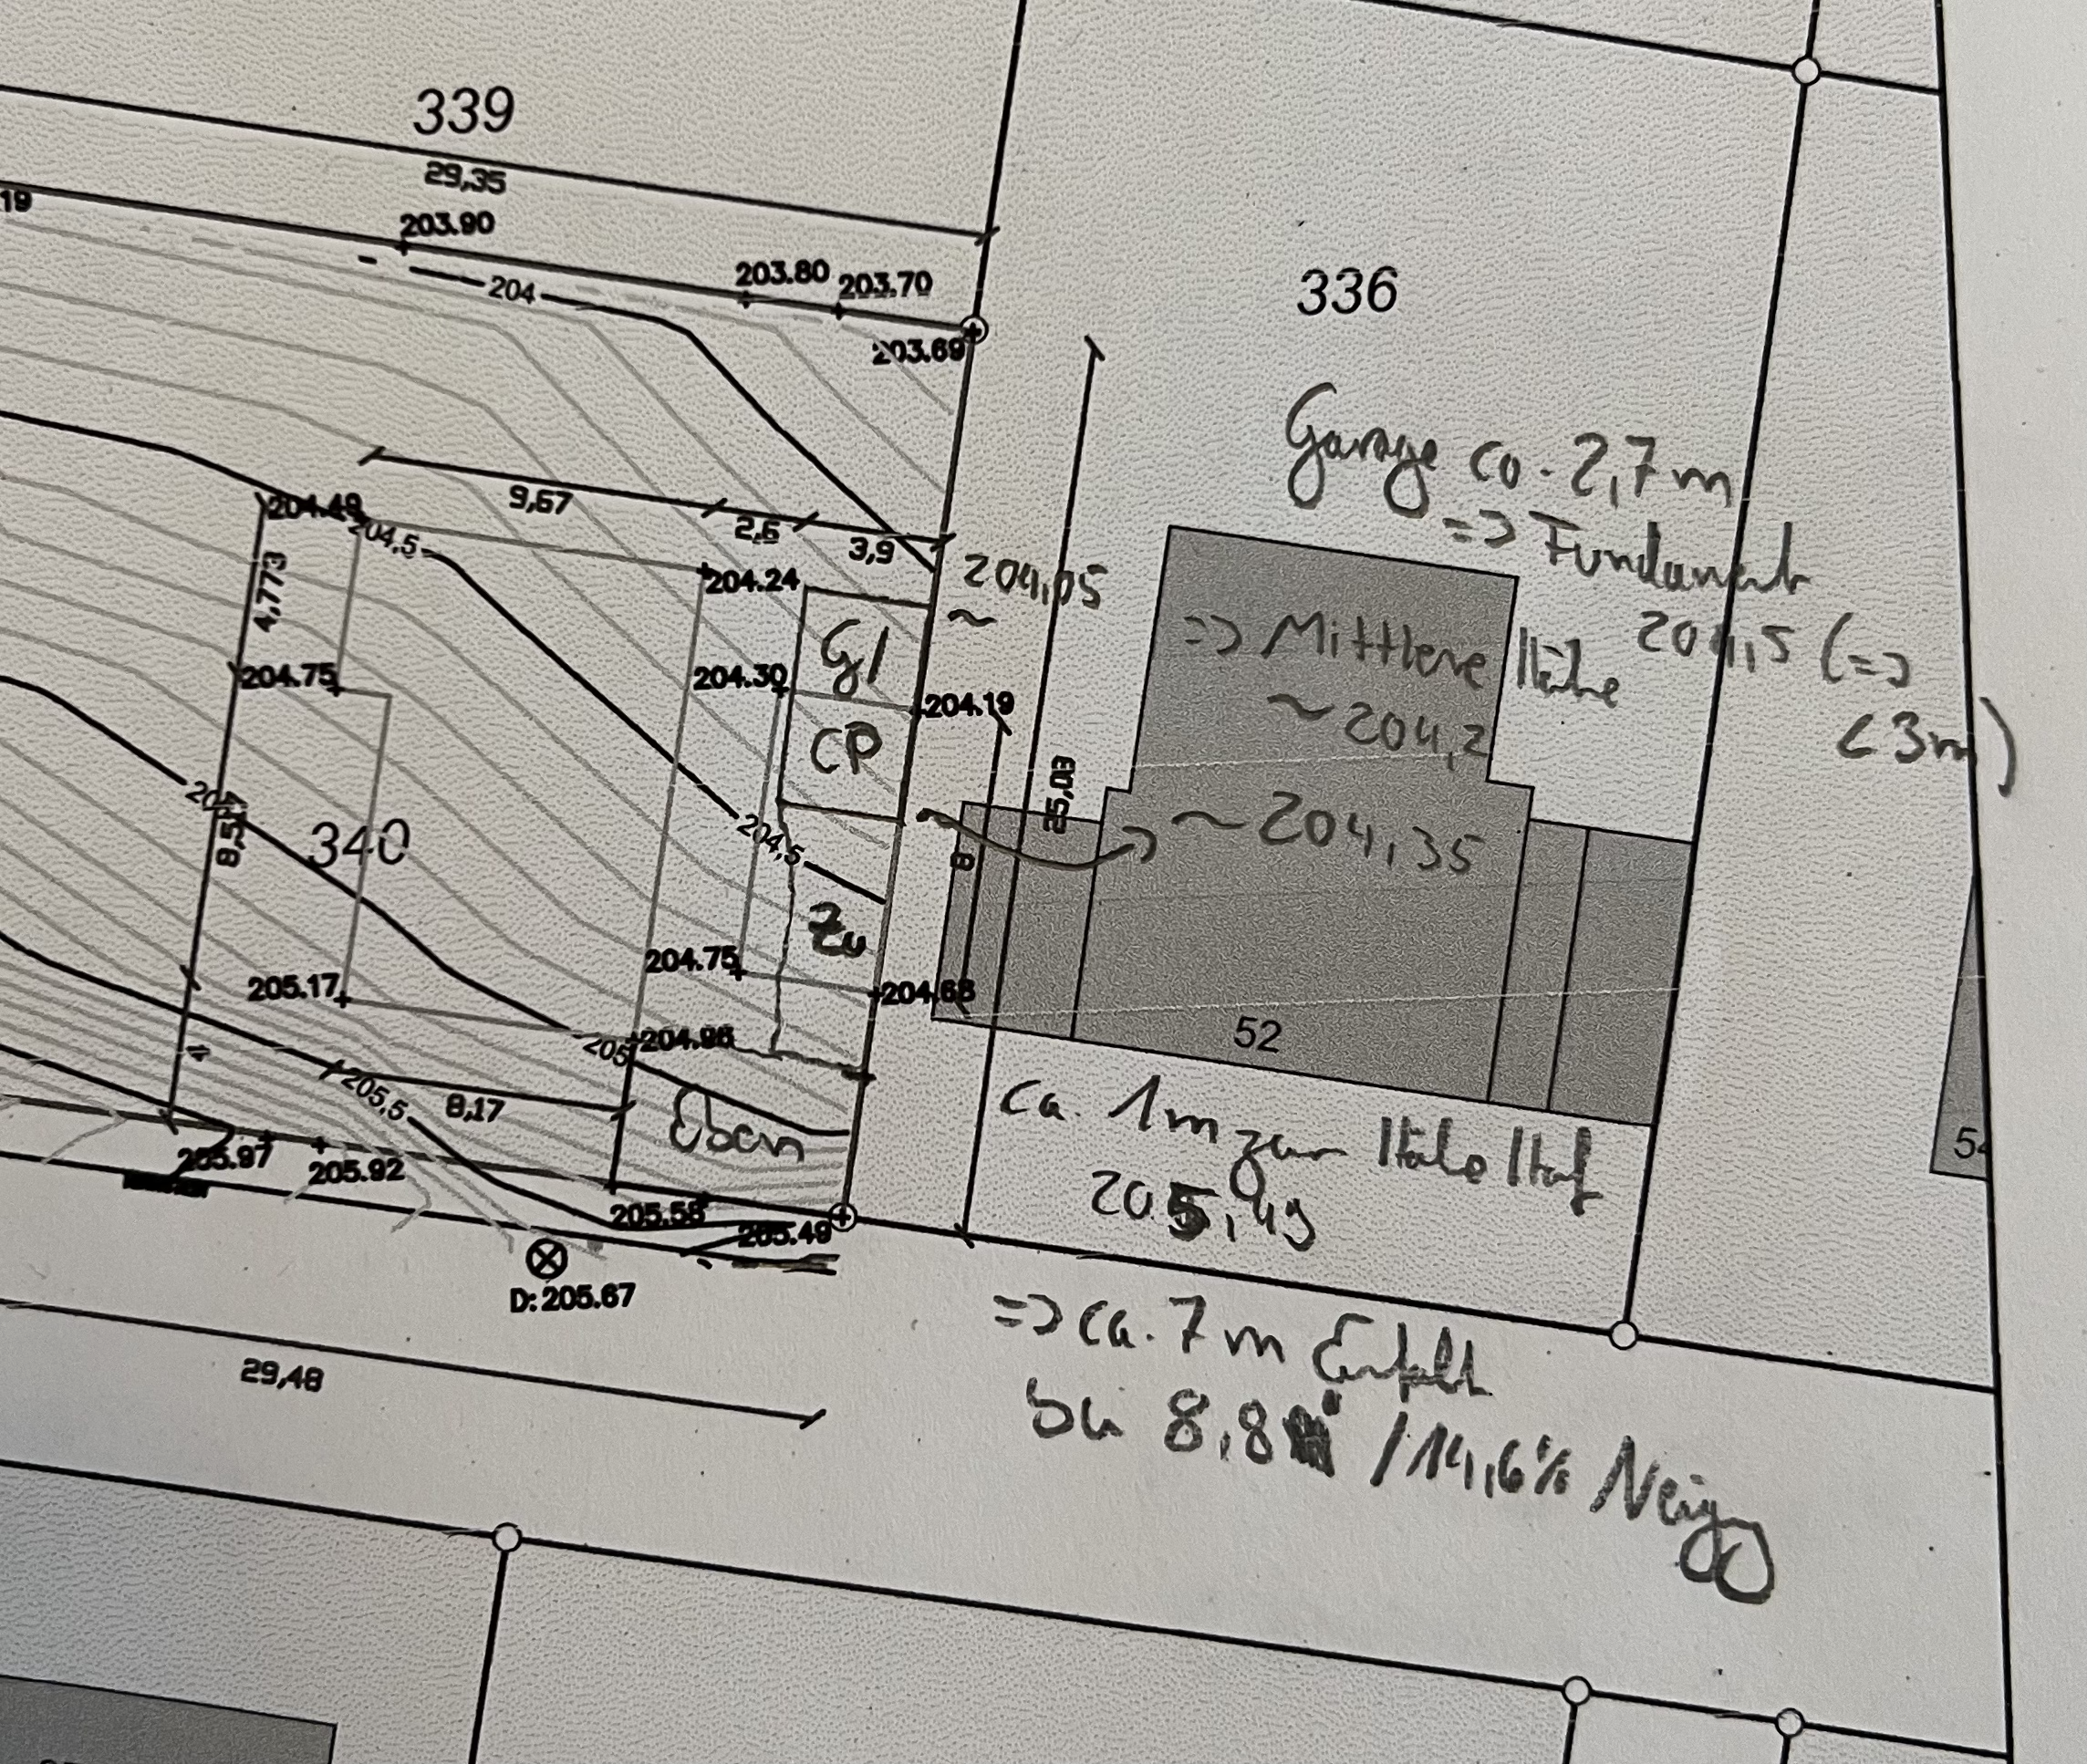 339
29,35
19
203.90
204
203.80
203.70
203.69
336
Garage ca. 2,7m
=> Fundament
204,5 (=>
< 3m)
9,67
2,6
3,9
204.49
204,5
4,773
204.24
204,05
~
=> Mittlere Höhe
~ 204,2
G1
204.30
204.75
204.19
CP
25,03
8
~ 204,35
340
204,5
Zu
204.75
204.68
205.17
52
54
4
205
204.96
205,5
8,17
Eben
ca. 1m zur Höhe Hof
205,49
205.97
205.92
205.58
205.49
D: 205.67
=> ca. 7m
bei 8,8 / 14,6% Neigg
29,48